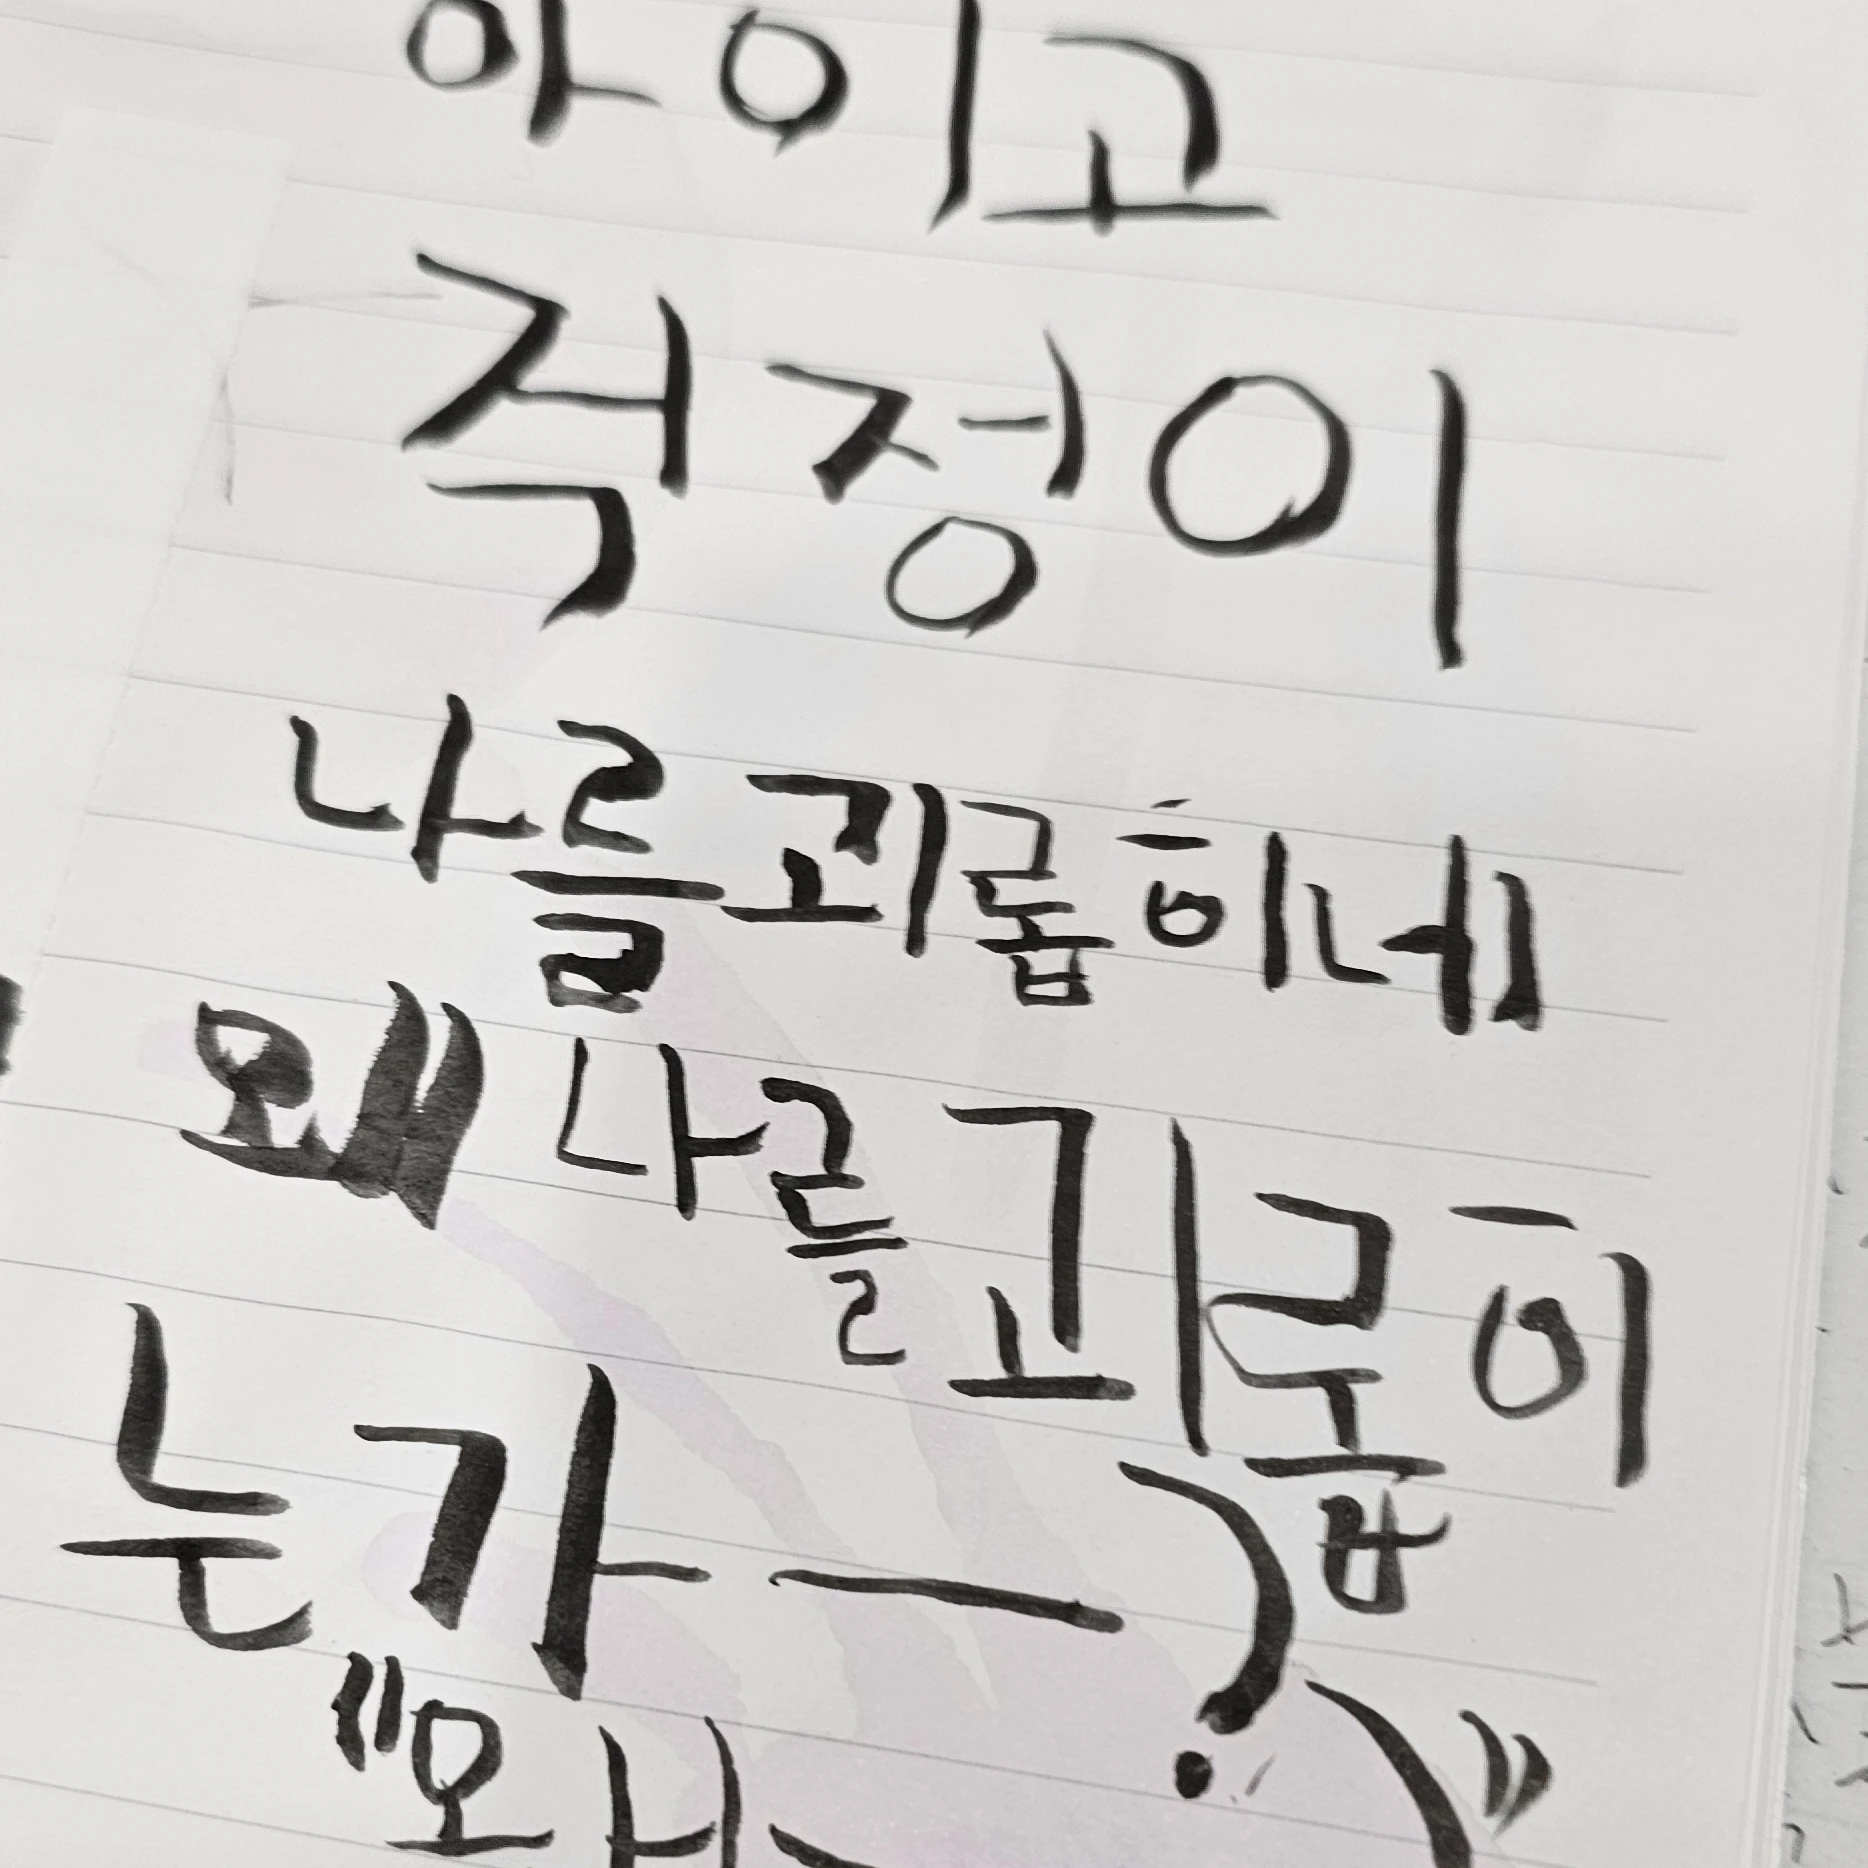 아이고
걱정이
나를괴롭히네
왜나를괴롭히
는가—?
"왜—?"